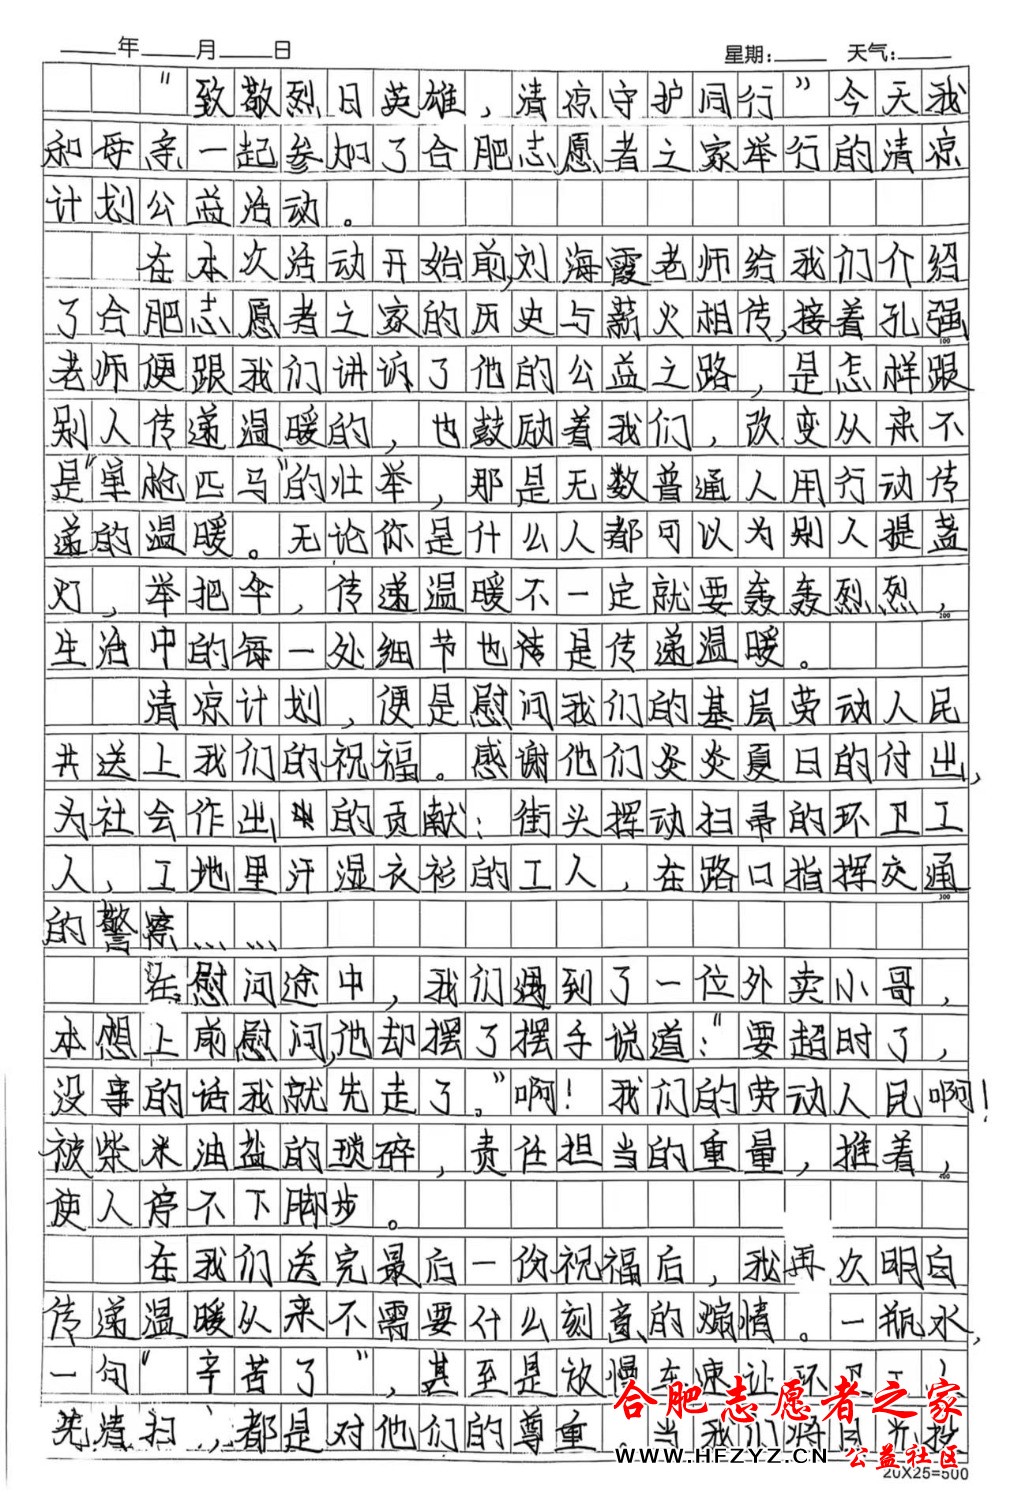 ____年____月____日 星期:____ 天气:____
“致敬烈日英雄，清凉守护同行”今天我
和母亲一起参加了合肥志愿者之家举行的清凉
计划公益活动。
在本次活动开始前,刘海霞老师给我们介绍
了合肥志愿者之家的历史与薪火相传,接着孔强
100
老师便跟我们讲诉了他的公益之路，是怎样跟
别人传递温暖的，也鼓励着我们，改变从来不
是“单枪匹马”的壮举，那是无数普通人用行动传
递的温暖。无论你是什么人都可以为别人提盏
灯，举把伞，传递温暖不一定就要轰轰烈烈，
200
生活中的每一处细节也皆是传递温暖。
清凉计划，便是慰问我们的基层劳动人民
共送上我们的祝福。感谢他们炎炎夏日的付出,
为社会作出的贡献：街头挥动扫帚的环卫工
人、工地里汗湿衣衫的工人、在路口指挥交通
300
的警察……
在慰问途中，我们遇到了一位外卖小哥，
本想上前慰问,他却摆了摆手说道：“要超时了，
没事的话我就先走了。”啊！我们的劳动人民啊！
被柴米油盐的琐碎，责任担当的重量，推着，
400
使人停不下脚步。
在我们送完最后一份祝福后，我再次明白
传递温暖从来不需要什么刻意的煽情。一瓶水,
一句“辛苦了”，甚至是放慢车速让环卫工人
先清扫，都是对他们的尊重。当我们将目光投
合肥志愿者之家
WWW.HFZYZ.CN 公益社区
20X25=500